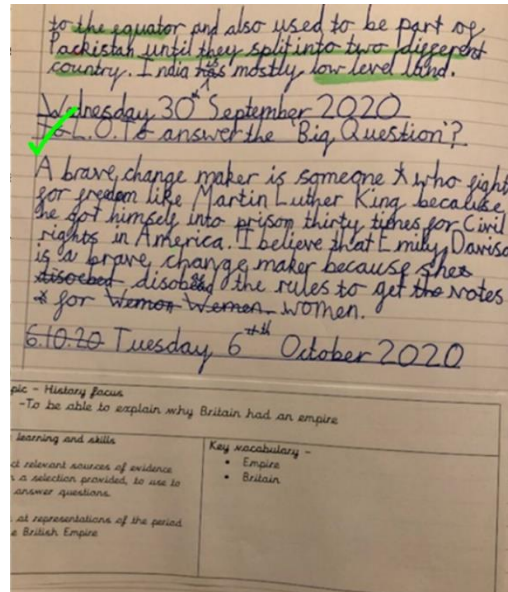 to the equator and also used to be part of
Packistan until they split into two different
country. India has is mostly low level land.
Wednesday 30th September 2020
To L.O. To answer the 'Big Question'?
A brave, change maker is someone * who fight
for freedom like Martin Luther King because
he got himself into prison thirty times for Civil
rights in America. I believe that Emily Daviso
is a brave, change maker because shes
disoebed disobeed the rules to get the votes
* for Wemon Women women.
6.10.20 Tuesday 6th October 2020
pic - History focus
-To be able to explain why Britain had an empire
learning and skills
ct relevant sources of evidence
a selection provided, to use to
answer questions.
at representations of the period
e British Empire
Key vocabulary -
• Empire
• Britain